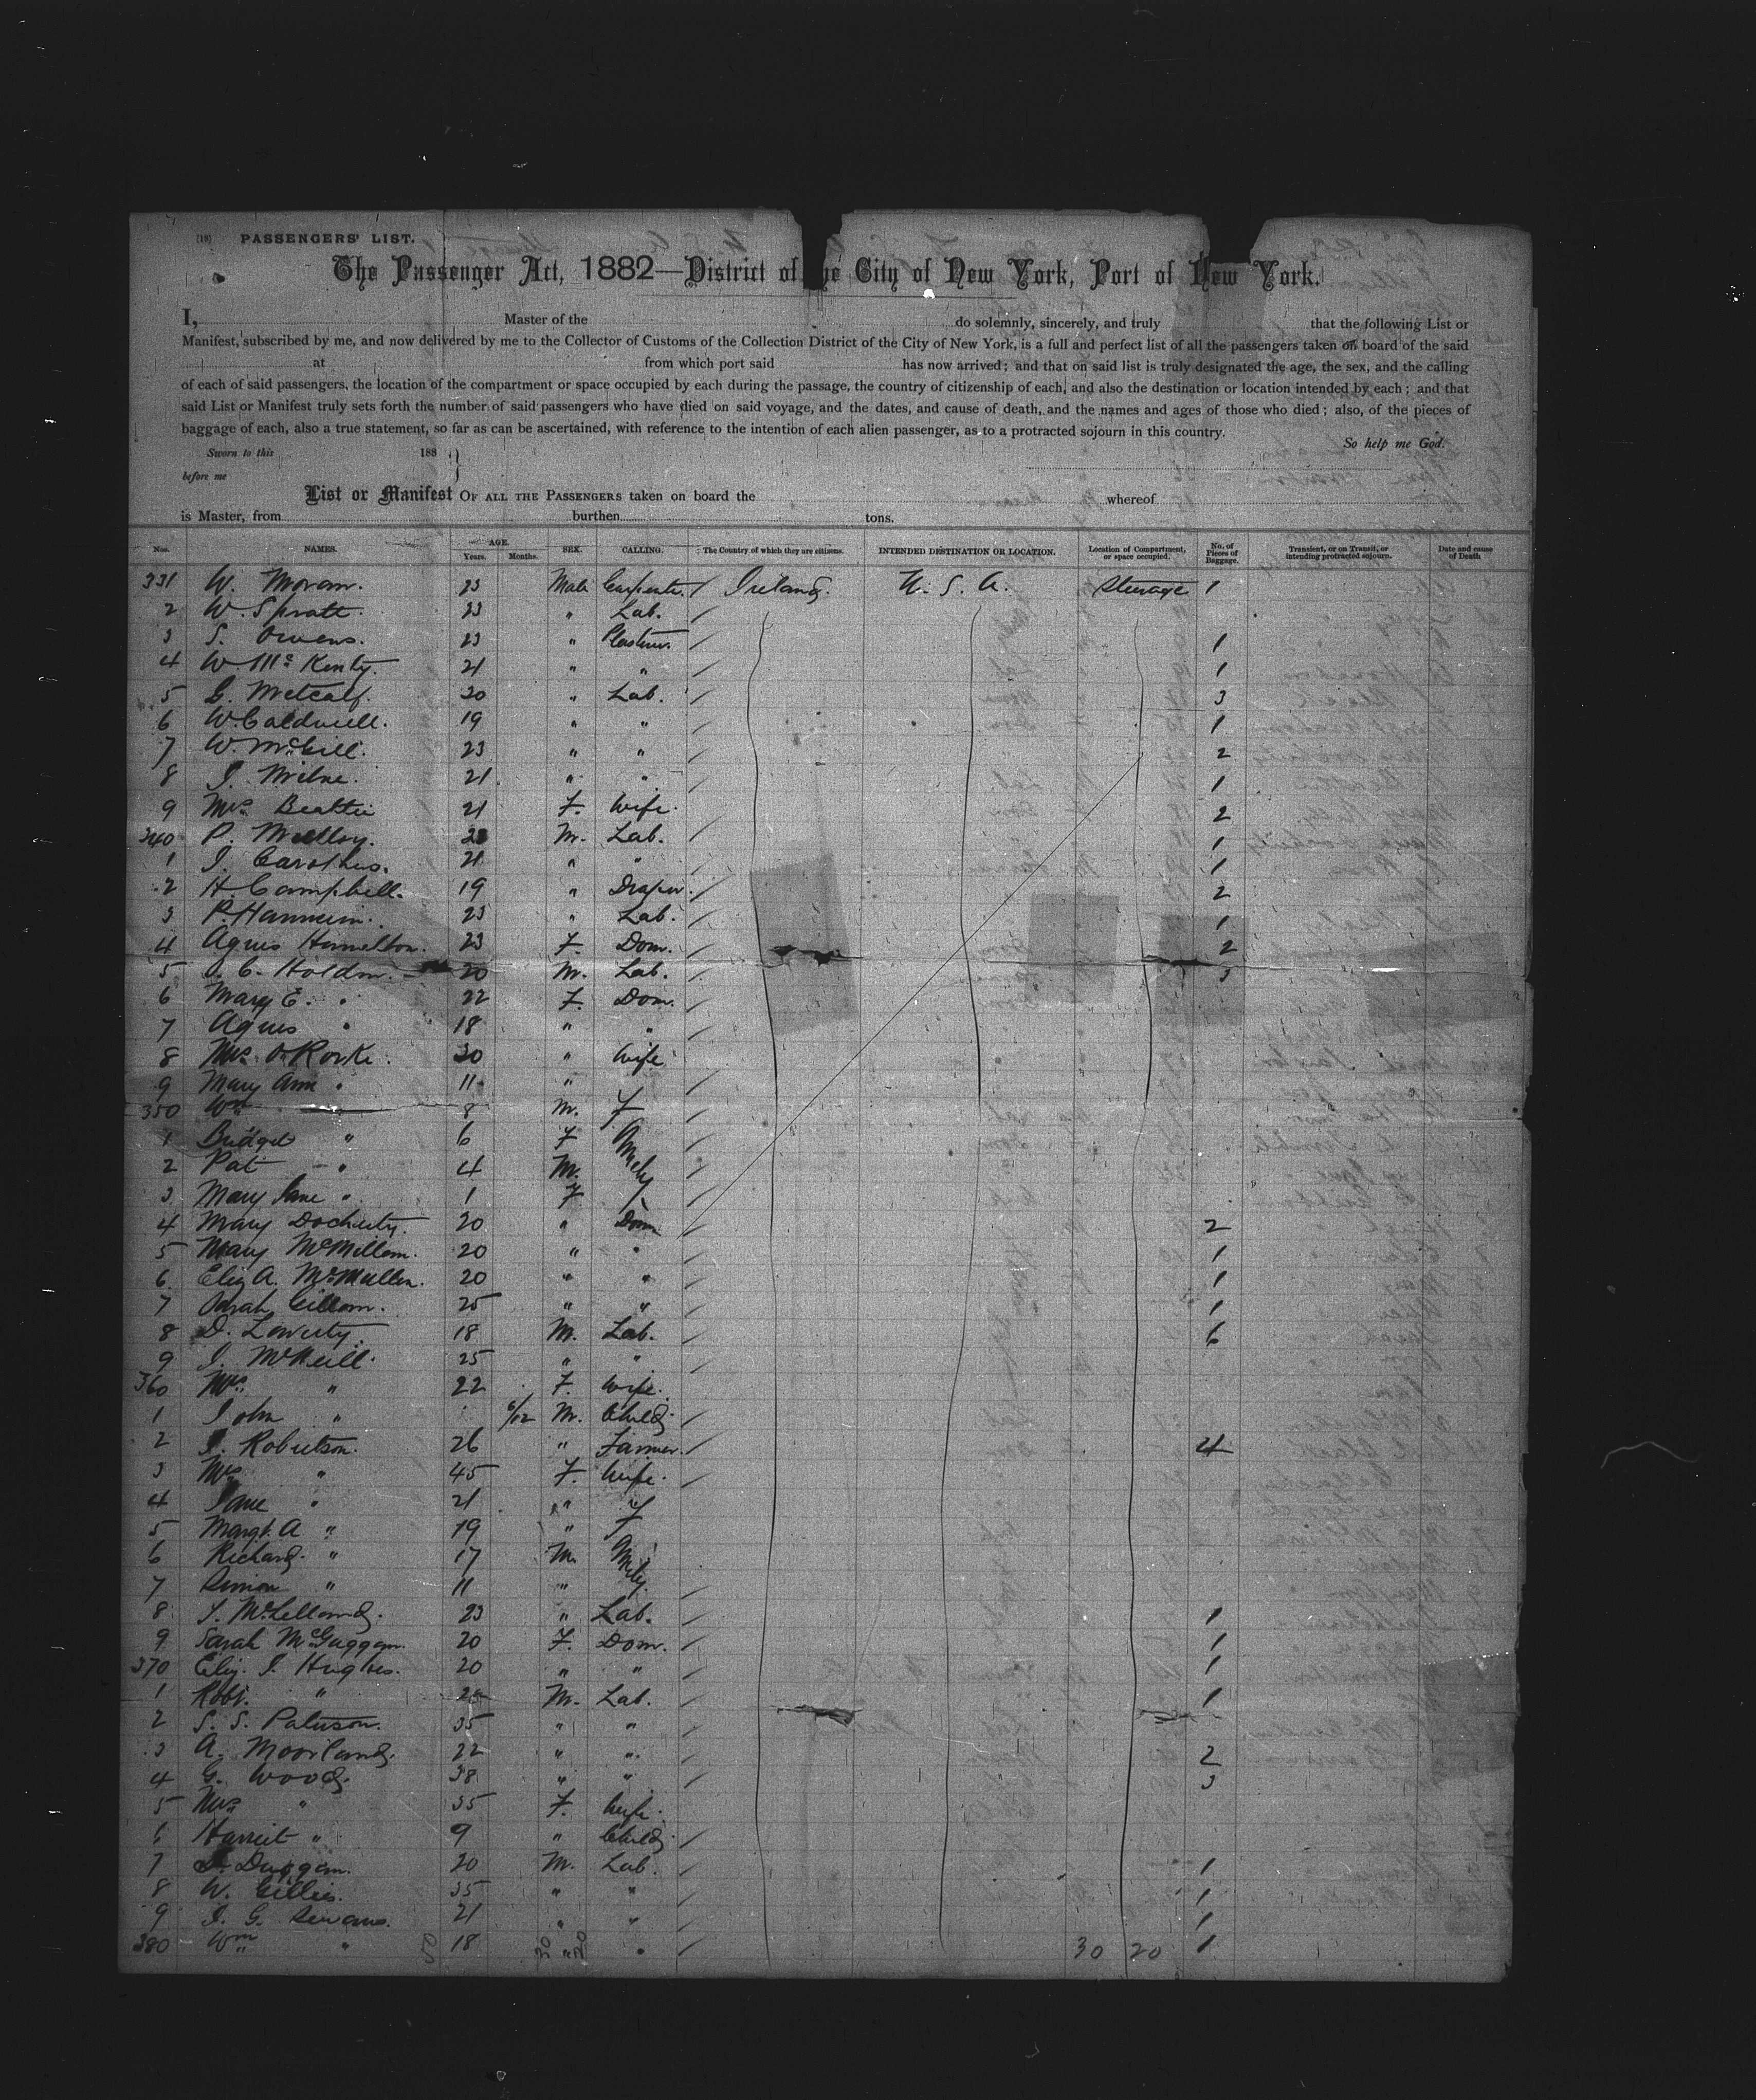 (18) PASSENGERS' LIST.
The Passenger Act, 1882—District of he City of New York, Port of New York.
I, Master of the do solemnly, sincerely, and truly that the following List or
Manifest, subscribed by me, and now delivered by me to the Collector of Customs of the Collection District of the City of New York, is a full and perfect list of all the passengers taken on board of the said
at from which port said has now arrived; and that on said list is truly designated the age, the sex, and the calling
of each of said passengers, the location of the compartment or space occupied by each during the passage, the country of citizenship of each, and also the destination or location intended by each; and that
said List or Manifest truly sets forth the number of said passengers who have died on said voyage, and the dates, and cause of death, and the names and ages of those who died; also, of the pieces of
baggage of each, also a true statement, so far as can be ascertained, with reference to the intention of each alien passenger, as to a protracted sojourn in this country.
So help me God.
Sworn to this 188
before me
List or Manifest OF ALL THE PASSENGERS taken on board the whereof
is Master, from burthen tons.
Nos. NAMES. AGE. Years. Months. SEX. CALLING. The Country of which they are citizens. INTENDED DESTINATION OR LOCATION. Location of Compartment, or space occupied. No. of Pieces of Baggage. Transient, or on Transit, or intending protracted sojourn. Date and cause of Death
331 W. Moran. 23 Male Carpenter. Ireland. U. S. A. Steerage 1
2 W. Spratt. 23 " Lab.
3 S. Owens. 23 " Plasterer 1
4 W. McKenty. 21 " " 1
5 G. Metcalf. 20 " Lab. 3
6 W. Caldwell. 19 " " 1
7 W. McGill. 23 " " 2
8 J. Milne. 21 " " 1
9 Mrs Beattie 21 F. Wife. 2
340 P. Melloy. M. Lab. 1
1 J. Carothers. 21 " " 1
2 H. Campbell. 19 " Draper. 2
3 P. 23 " Lab. 1
4 Agnes Hamelton. 23 F. Dom. 2
5 C. Holdm. 20 M. Lab. 3
6 Mary E. " 22 F. Dom.
7 Agnes " 18 " "
8 Mrs O'Rorke. 30 " Wife
9 Mary Ann " 11 "
350 Wm " 8 M. F
1 Bridget " 6 F a
2 Pat " 4 M. mily
3 Mary Jane " 1 F
4 Mary Docherty. 20 " Dom 2
5 Mary McMillan. 20 " " 1
6 Eliz A. McMullen. 20 " " 1
7 Sarah Gillam. 25 " " 1
8 D. Lowerty. 18 M. Lab. 6
9 J. McNeill. 25 " "
360 Mrs " 22 F. Wife.
1 John " 6/12 M. Child
2 J. Robertson. 26 " Farmer. 4
3 Mrs " 45 F. Wife.
4 Jane " 21 " F
5 Margt. A " 19 " a
6 Richard. " 17 M. mily.
7 Simon " 11 "
8 J. McLelland. 23 " Lab. 1
9 Sarah McGuggan. 20 F. Dom. 1
370 Eliz. J. Hughes. 20 " " 1
1 Robt. " M. Lab. 1
2 S. S. Paterson. 35 " "
3 A. Moorland. 22 " " 2
4 G. Wood. 38 " " 3
5 Mrs " 35 F. Wife.
6 Harriet " 9 " Child
7 Duggan. 20 M. Lab. 1
8 W. Gillies. 35 " " 1
9 J. G. 21 " " 1
380 Wm " 50 18 30 " 20 " 30 20 1